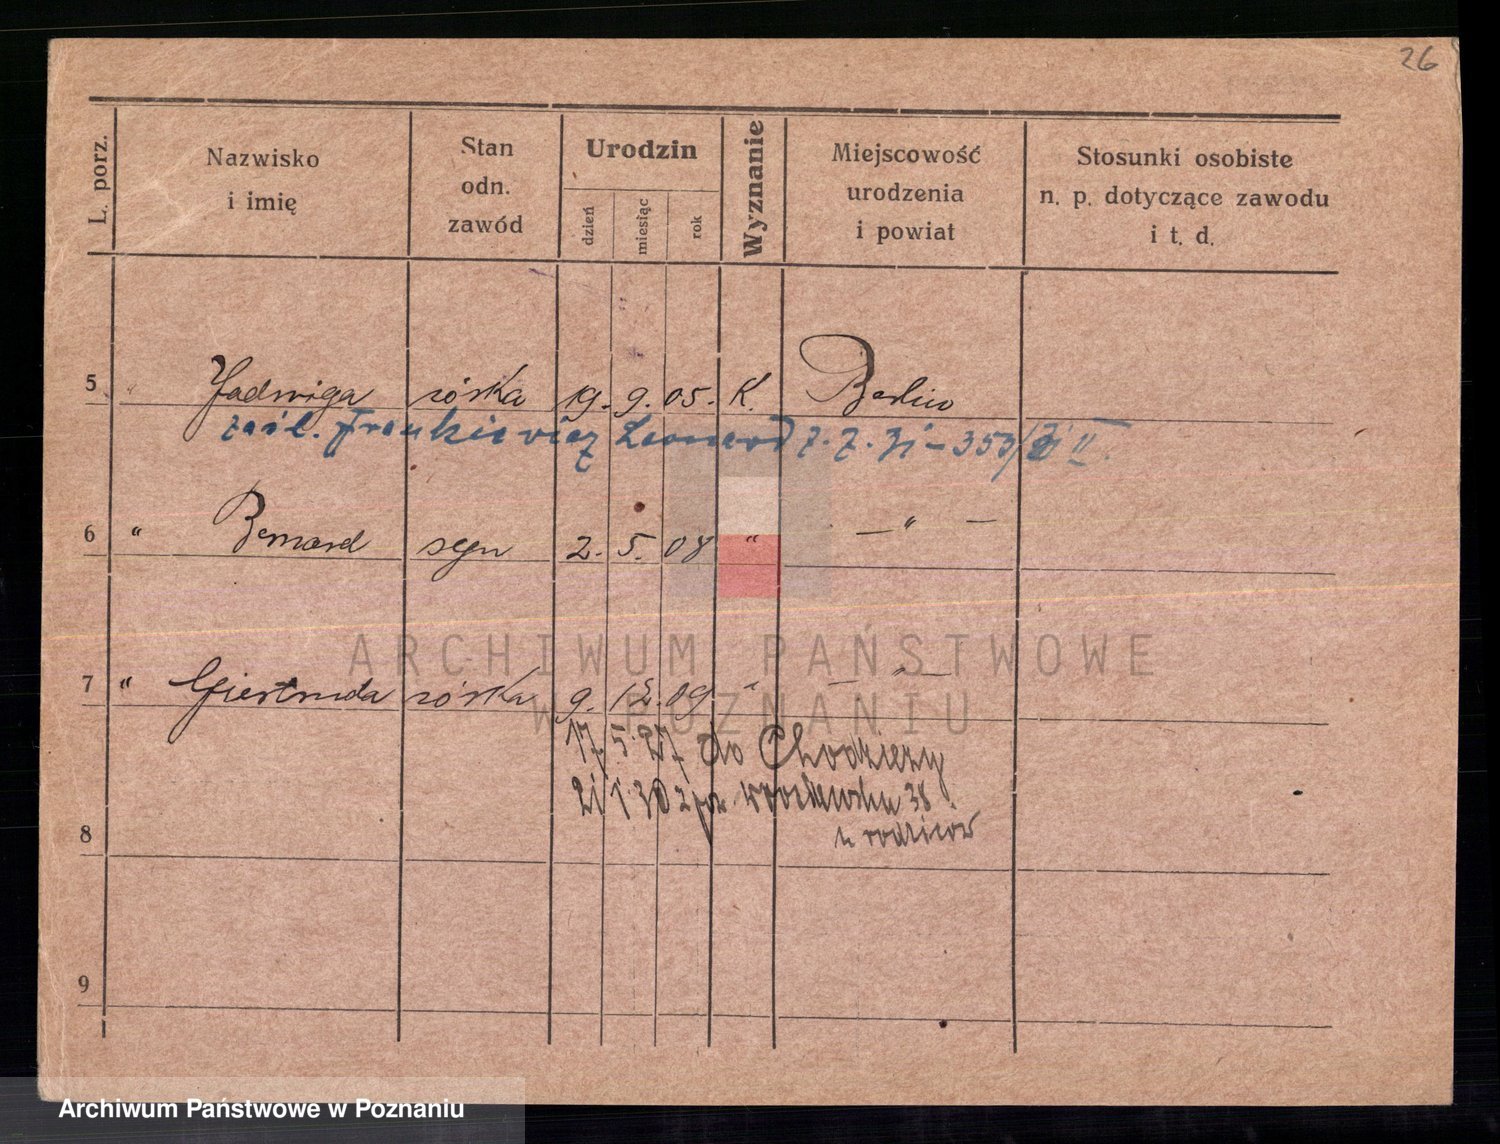 26
L. porz.
Nazwisko
i imię
Stan
odn.
zawód
Urodzin
dzień
miesiąc
rok
Wyznanie
Miejscowość
urodzenia
i powiat
Stosunki osobiste
n. p. dotyczące zawodu
i t. d.
5 " Jadwiga córka 19. 9. 05. K. Berlin
zaśl. Frankiewicz Leonard
6 " Bernard syn 2. 5. 08 " — " —
7 " Giertruda córka 9. 12. 09 " — " —
17 5. 27 do Chodzieży
21 1 30 z
38
u rodziców
8
9
ARCHIWUM PAŃSTWOWE
W POZNANIU
Archiwum Państwowe w Poznaniu